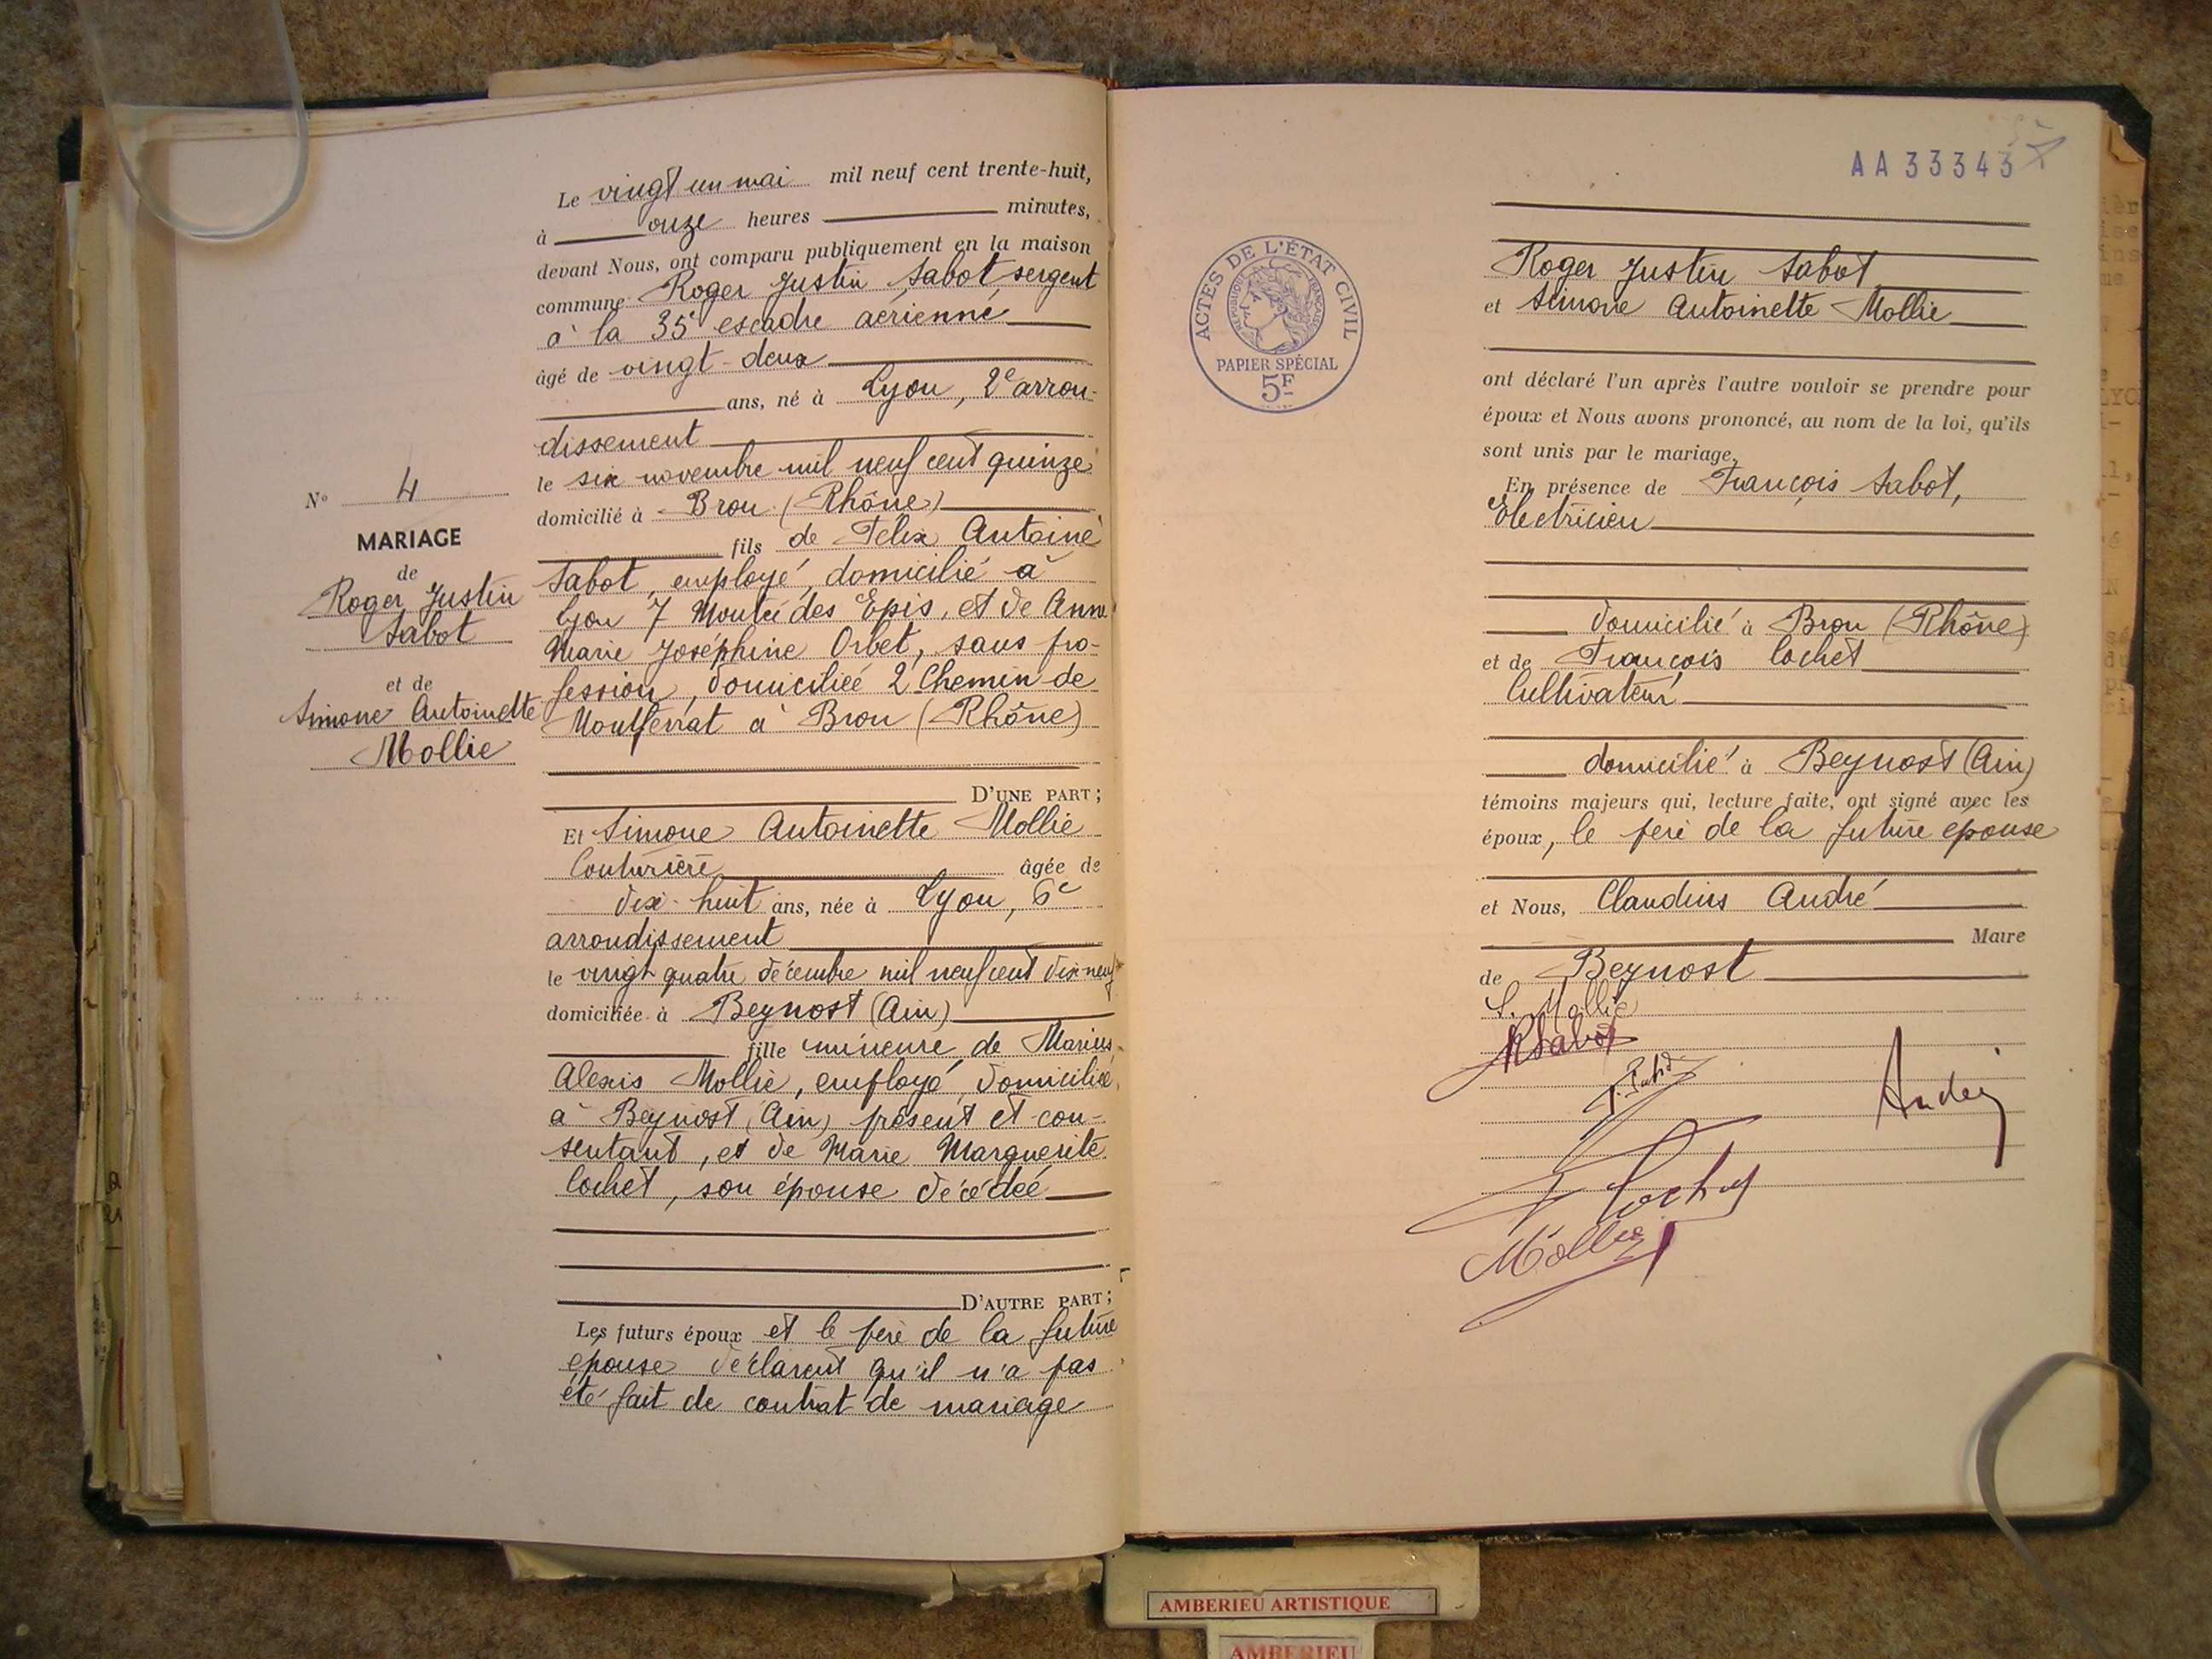 Le vingt un mai mil neuf cent trente-huit,
à onze heures minutes,
devant Nous, ont comparu publiquement en la maison
commune Roger Justin Sabot, sergent
à la 35e escadre aérienne
âgé de vingt-deux
ans, né à Lyon, 2e arron-
dissement
le six novembre mil neuf cent quinze
domicilié à Bron (Rhône)
fils de Félix Antoine
Sabot, employé, domicilié à
Lyon 7 Montée des Epis, et de Anne
Marie Joséphine Orbet, sans pro-
fession, domiciliée 2 Chemin de
Montferrat à Bron (Rhône)
D'UNE PART;
Et Simone Antoinette Mollie
Couturière âgée de
dix-huit ans, née à Lyon, 6e
arrondissement
le vingt quatre décembre mil neuf cent dix-neuf
domiciliée à Beynost (Ain)
fille mineure de Marius
Alexis Mollie, employé, domicilié
à Beynost (Ain) présent et con-
sentant, et de Marie Marguerite
Cochet, son épouse décédée
D'AUTRE PART;
Les futurs époux et le père de la future
épouse déclarent qu'il n'a pas
été fait de contrat de mariage
No 4
MARIAGE
de
Roger Justin
Sabot
et de
Simone Antoinette
Mollie
AA 33343
ACTES DE L'ÉTAT CIVIL
RÉPUBLIQUE FRANÇAISE
PAPIER SPÉCIAL
5F
Roger Justin Sabot
et Simone Antoinette Mollie
ont déclaré l'un après l'autre vouloir se prendre pour
époux et Nous avons prononcé, au nom de la loi, qu'ils
sont unis par le mariage.
En présence de François Sabot,
Electricien
domicilié à Bron (Rhône)
et de François Cochet
Cultivateur
domicilié à Beynost (Ain)
témoins majeurs qui, lecture faite, ont signé avec les
époux, le père de la future epouse
et Nous, Claudius André
Maire
de Beynost
S. Mollie
RSabot
André
F Cochet
Mollie
AMBERIEU ARTISTIQUE
AMBERIEU